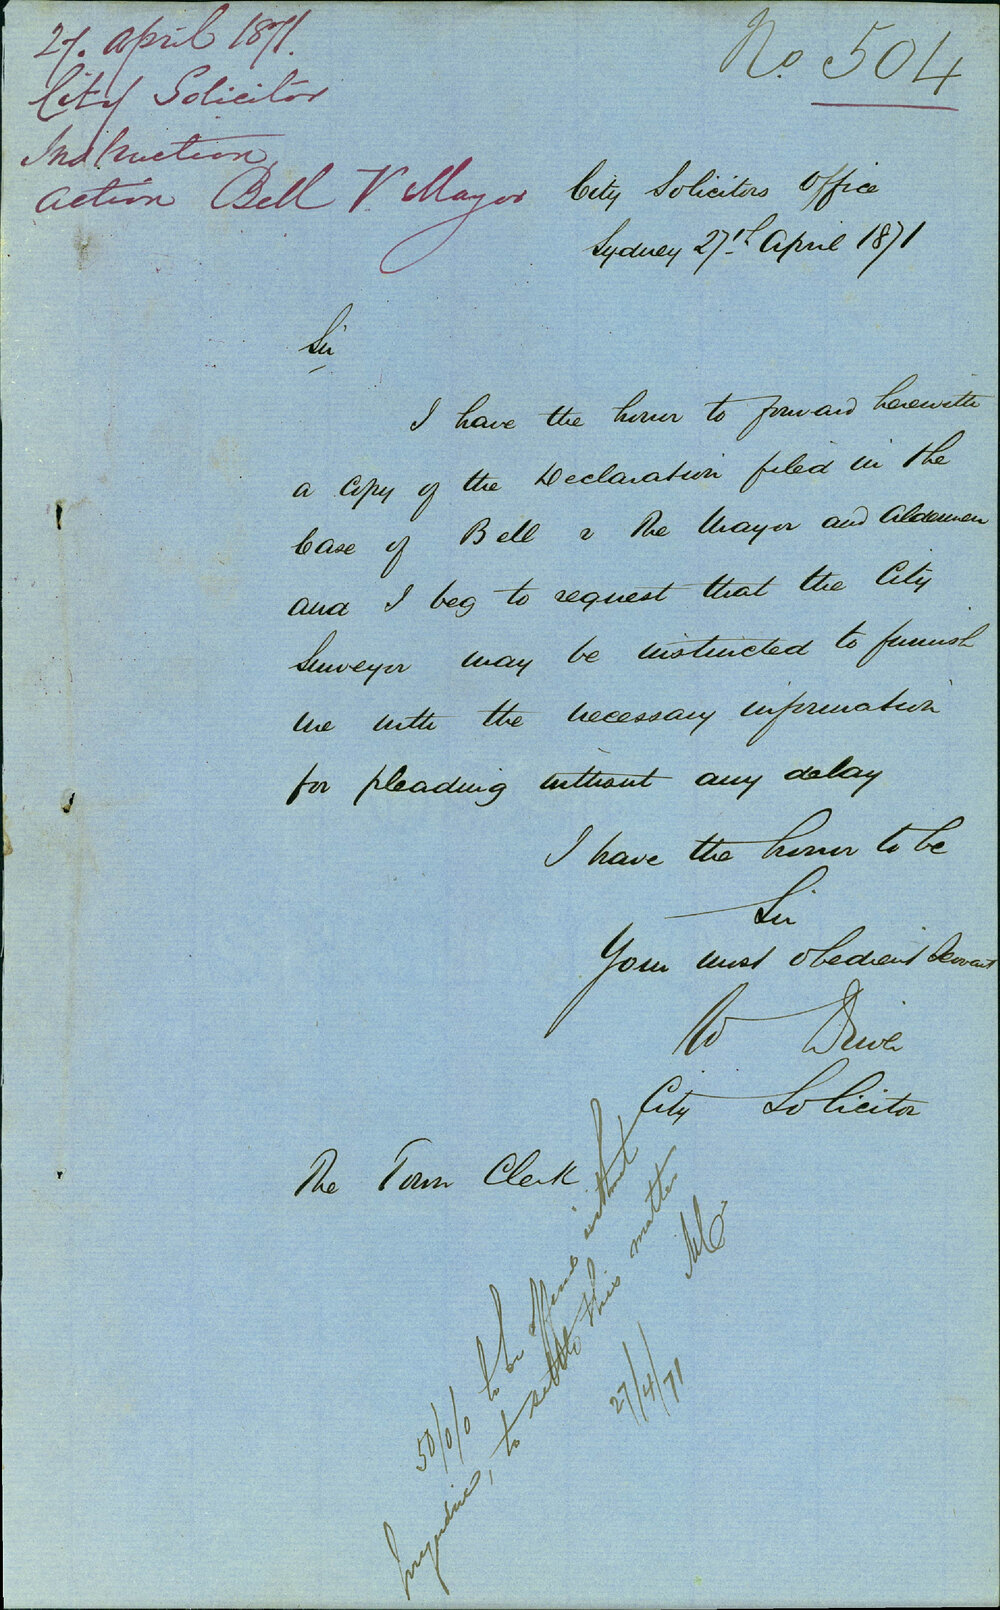 27. April 1871.
City Solicitor
Instruction,
Action Bell V. Mayor
No. 504
City Solicitors Office
Sydney 27th April 1871
Sir
I have the honor to forward herewith
a copy of the Declaration filed in the
Case of Bell v The Mayor and Aldermen
and I beg to request that the City
Surveyor may be instructed to furnish
me with the necessary information
for pleading without any delay
I have the honor to be
Sir
Your most obedient Servant
W Driver
City Solicitor
The Town Clerk
50/0/0 to be offered without
prejudice, to settle this matter
27/4/71